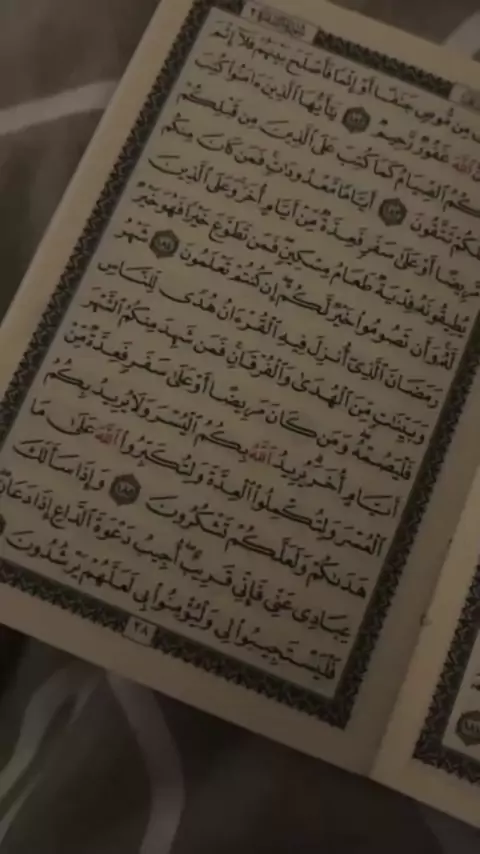 مِن مُّوصٍ جَنَفًا أَوْ إِثْمًا فَأَصْلَحَ بَيْنَهُمْ فَلَآ إِثْمَ
ٱللَّهَ غَفُورٌ رَّحِيمٌ ١٨٢ يَٰٓأَيُّهَا ٱلَّذِينَ ءَامَنُوا۟ كُتِبَ
ـكُمُ ٱلصِّيَامُ كَمَا كُتِبَ عَلَى ٱلَّذِينَ مِن قَبْلِكُمْ
ـلَّكُمْ تَتَّقُونَ ١٨٣ أَيَّامًا مَّعْدُودَٰتٍ فَمَن كَانَ مِنكُم
مَّرِيضًا أَوْ عَلَىٰ سَفَرٍ فَعِدَّةٌ مِّنْ أَيَّامٍ أُخَرَ وَعَلَى ٱلَّذِينَ
يُطِيقُونَهُۥ فِدْيَةٌ طَعَامُ مِسْكِينٍ فَمَن تَطَوَّعَ خَيْرًا فَهُوَ خَيْرٌ
لَّهُۥ وَأَن تَصُومُوا۟ خَيْرٌ لَّكُمْ إِن كُنتُمْ تَعْلَمُونَ ١٨٤ شَهْرُ
رَمَضَانَ ٱلَّذِىٓ أُنزِلَ فِيهِ ٱلْقُرْءَانُ هُدًى لِّلنَّاسِ
وَبَيِّنَٰتٍ مِّنَ ٱلْهُدَىٰ وَٱلْفُرْقَانِ فَمَن شَهِدَ مِنكُمُ ٱلشَّهْرَ
فَلْيَصُمْهُ وَمَن كَانَ مَرِيضًا أَوْ عَلَىٰ سَفَرٍ فَعِدَّةٌ مِّنْ
أَيَّامٍ أُخَرَ يُرِيدُ ٱللَّهُ بِكُمُ ٱلْيُسْرَ وَلَا يُرِيدُ بِكُمُ
ٱلْعُسْرَ وَلِتُكْمِلُوا۟ ٱلْعِدَّةَ وَلِتُكَبِّرُوا۟ ٱللَّهَ عَلَىٰ مَا
هَدَىٰكُمْ وَلَعَلَّكُمْ تَشْكُرُونَ ١٨٥ وَإِذَا سَأَلَكَ
عِبَادِى عَنِّى فَإِنِّى قَرِيبٌ أُجِيبُ دَعْوَةَ ٱلدَّاعِ إِذَا دَعَانِ
فَلْيَسْتَجِيبُوا۟ لِى وَلْيُؤْمِنُوا۟ بِى لَعَلَّهُمْ يَرْشُدُونَ
٢٨